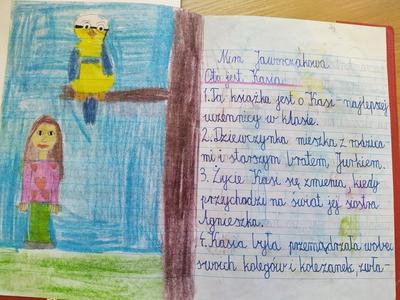 Mira Jaworczakowa
Oto jest Kasia.
1. Ta książka jest o Kasi - najlepszej
uczennicy w klasie.
2. Dziewczynka mieszka z rodzica
mi i starszym bratem, Jurkiem.
3. Życie Kasi się zmienia, kiedy
przychodzi na świat jej siostra
Agnieszka.
4. Kasia była przemądrzała wobec
swoich kolegów i koleżanek, zwła-